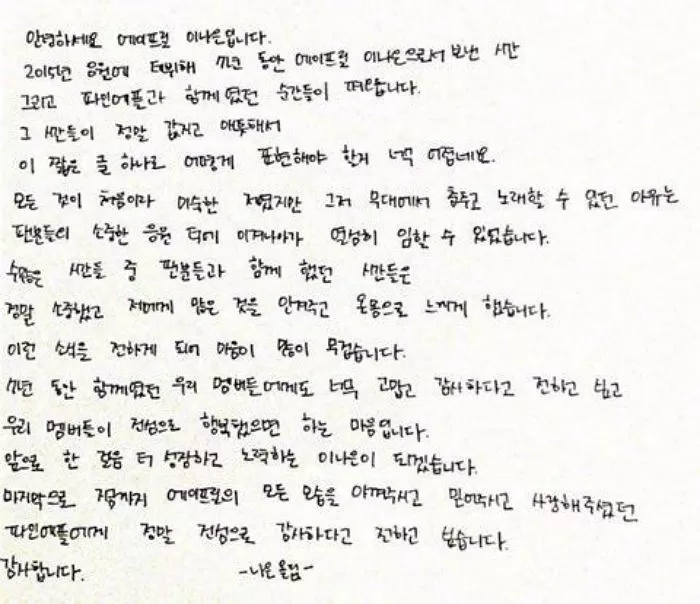 안녕하세요 에이프릴 이나은입니다.
2015년 응원에 데뷔해 7년 동안 에이프릴 이나은으로서 보낸 시간
그리고 파인애플과 함께 였던 순간들이 떠오릅니다.
그 시간들이 정말 값지고 애틋해서
이 짧은 글 하나로 어떻게 표현해야 할지 너무 어렵네요.
모든 것이 처음이라 미숙한 저였지만 그저 무대에서 춤추고 노래할 수 있던 이유는
팬분들의 소중한 응원 덕에 이겨나아가 열심히 임할 수 있었습니다.
수많은 시간들 중 팬분들과 함께 했던 시간들은
정말 소중했고 저에게 많은 것을 안겨주고 온몸으로 느끼게 했습니다.
이런 소식을 전하게 되어 마음이 많이 무겁습니다.
7년 동안 함께였던 우리 멤버들에게도 너무 고맙고 감사하다고 전하고 싶고
우리 멤버들이 진심으로 행복했으면 하는 마음입니다.
앞으로 한 걸음 더 성장하고 노력하는 이나은이 되겠습니다.
마지막으로 지금까지 에이프릴의 모든 모습을 아껴주시고 믿어주시고 사랑해주셨던
파인애플에게 정말 진심으로 감사하다고 전하고 싶습니다.
감사합니다. -나은 올림-